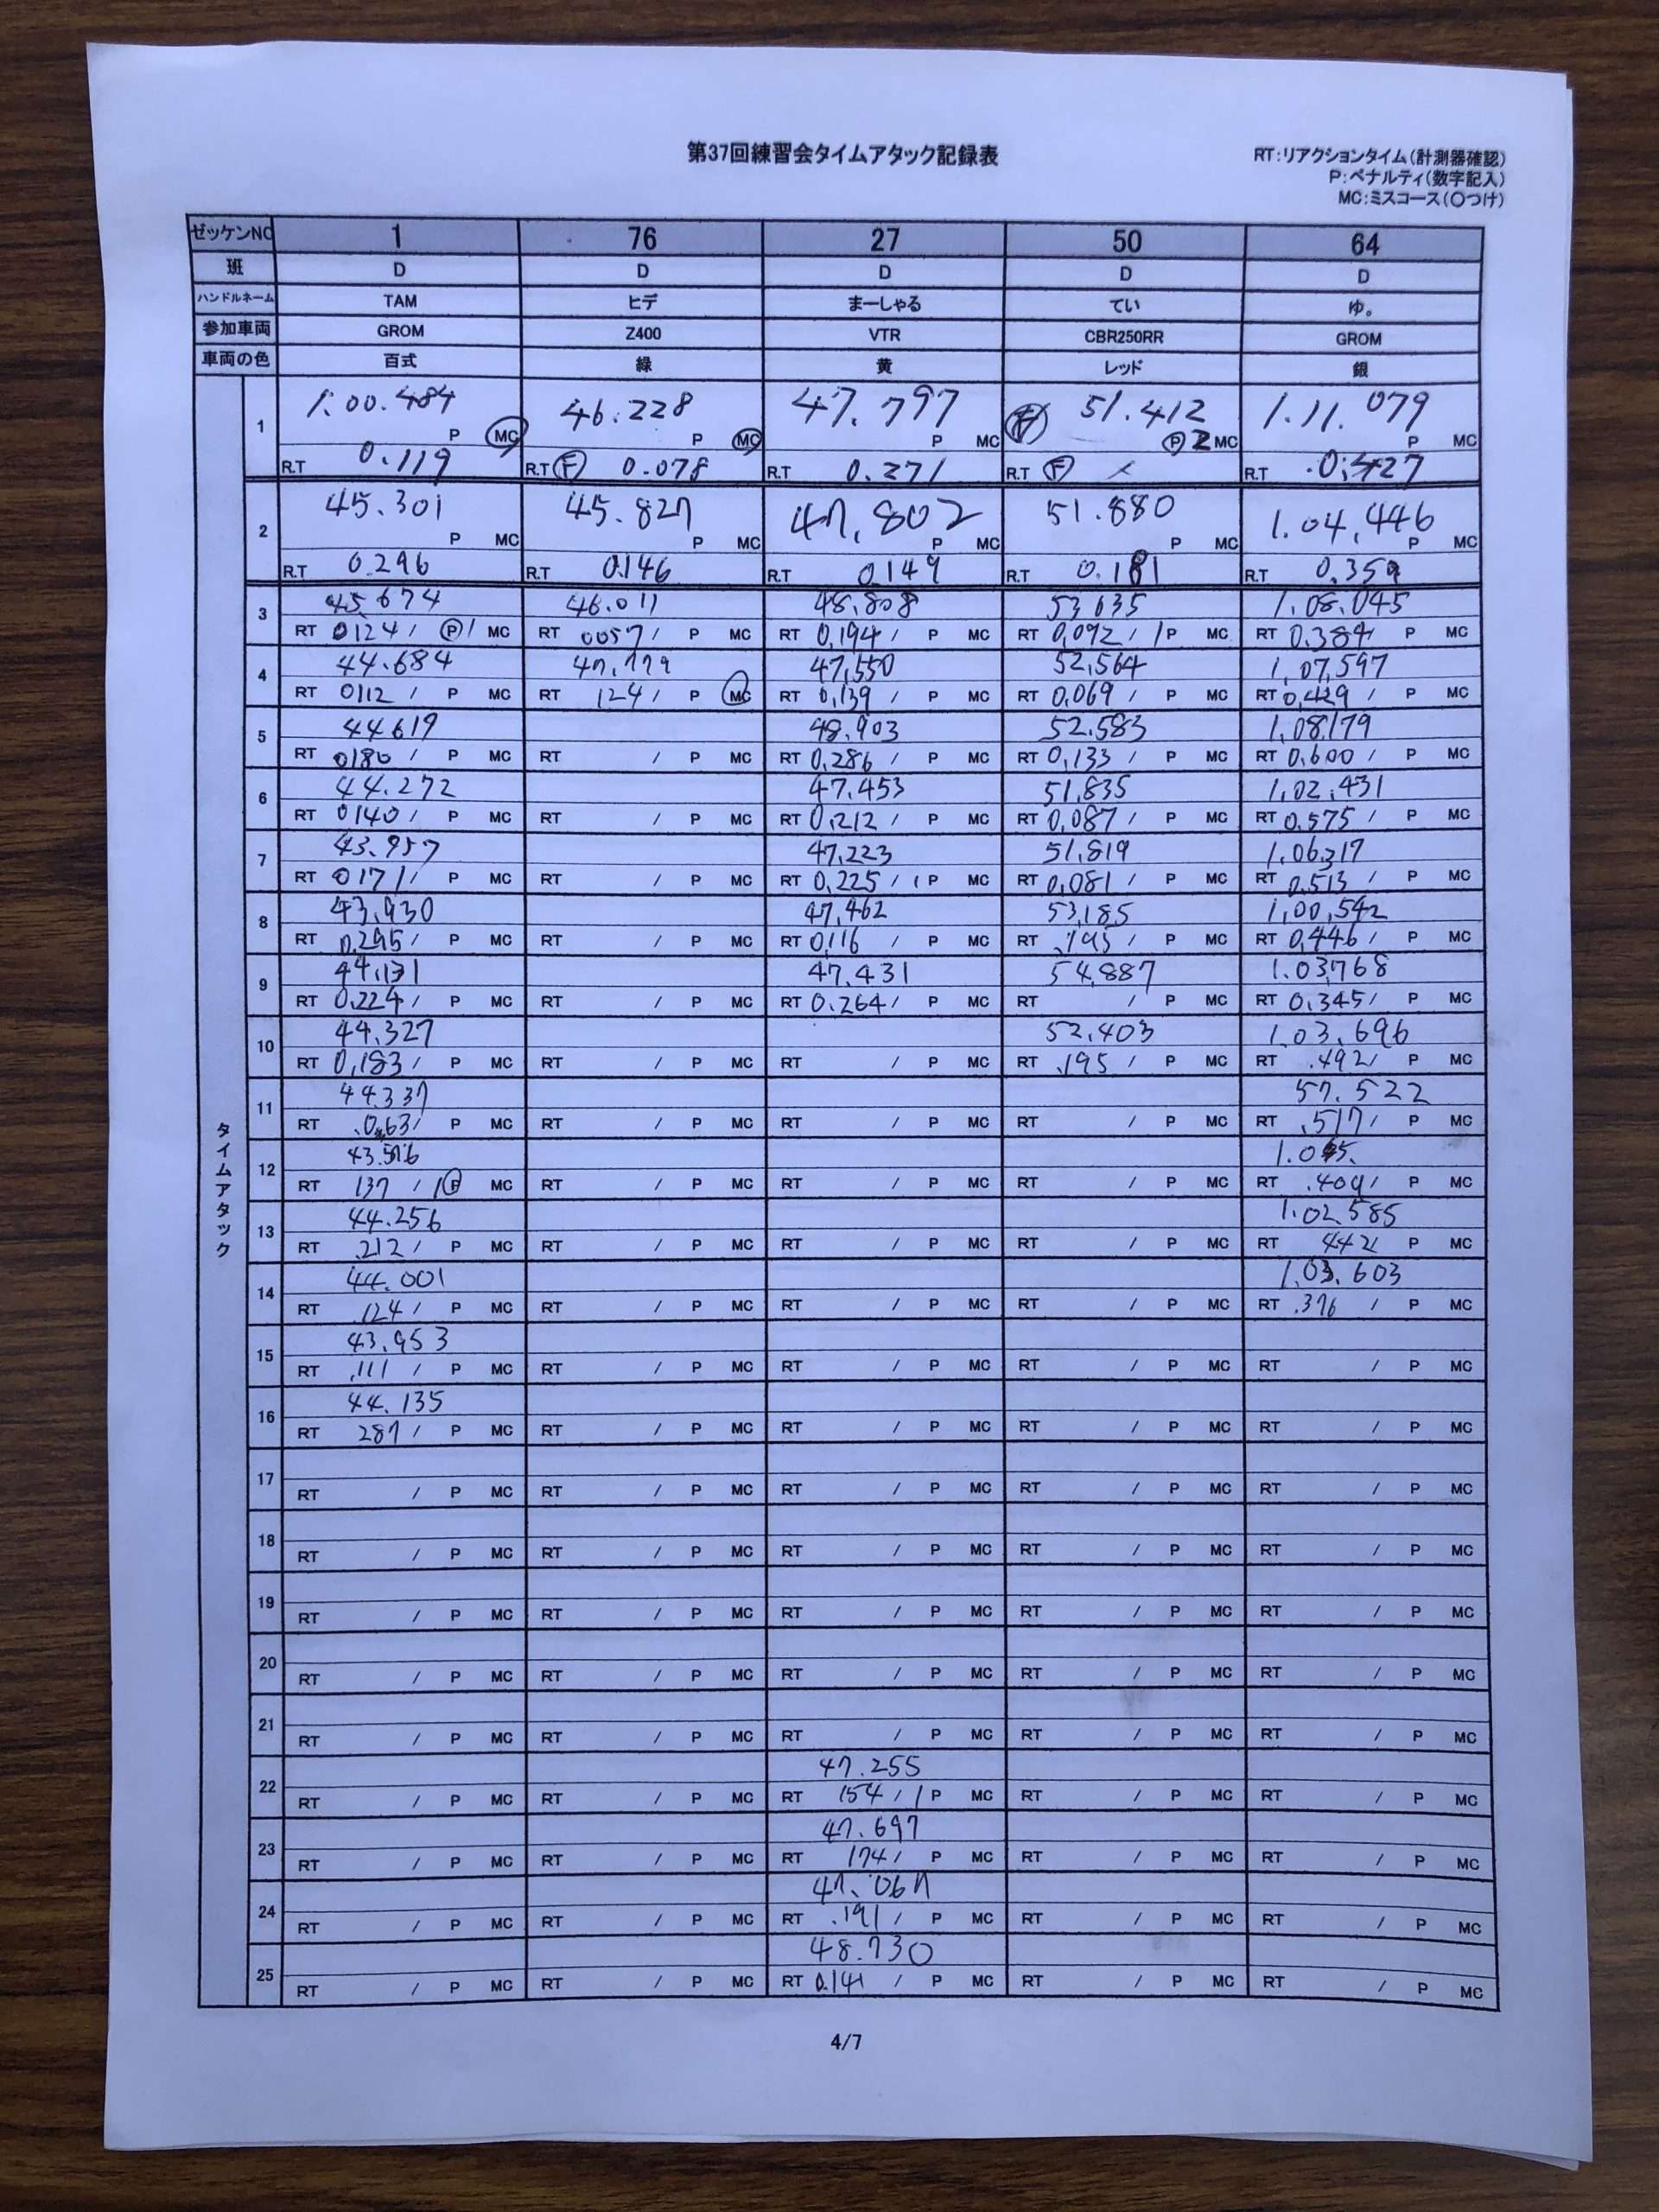 第37回練習会タイムアタック記録表
RT:リアクションタイム(計測器確認)
P:ペナルティ(数字記入)
MC:ミスコース(〇つけ)
ゼッケンNO 1 76 27 50 64
班 D D D D D
ハンドルネーム TAM ヒデ まーしゃる てい ゆ。
参加車両 GROM Z400 VTR CBR250RR GROM
車両の色 百式 緑 黄 レッド 銀
タイムアタック
1 1.00.484 46.228 47.797 51.412 1.11.079
P MC P MC P MC P 2 MC P MC
R.T 0.119 R.T F 0.078 R.T 0.271 R.T F × R.T .0.427
2 45.301 45.827 47.802 51.880 1.04.446
P MC P MC P MC P MC P MC
R.T 0.296 R.T 0.146 R.T 0.149 R.T 0.181 R.T 0.359
3 45.674 46.011 48.808 53.635 1.08.045
RT 0124 / P 1 MC RT 0057 / P MC RT 0.194 / P MC RT 0.092 / 1 P MC RT 0.384 / P MC
4 44.684 47.779 47.550 52.564 1.07.597
RT 0112 / P MC RT 124 / P MC RT 0.139 / P MC RT 0.069 / P MC RT 0.429 / P MC
5 44619 48.903 52.583 1.08179
RT 0180 / P MC RT / P MC RT 0.286 / P MC RT 0.133 / P MC RT 0.600 / P MC
6 44.272 47.453 51.835 1.02.431
RT 0140 / P MC RT / P MC RT 0.212 / P MC RT 0.087 / P MC RT 0.575 / P MC
7 43.957 47.223 51.819 1.06.317
RT 0171 / P MC RT / P MC RT 0.225 / 1 P MC RT 0.081 / P MC RT 0.513 / P MC
8 43.930 47.462 53.185 1.00.542
RT 0.295 / P MC RT / P MC RT 0.116 / P MC RT .195 / P MC RT 0.446 / P MC
9 44.131 47.431 54.887 1.03.768
RT 0.224 / P MC RT / P MC RT 0.264 / P MC RT / P MC RT 0.345 / P MC
10 44.327 52.403 1.03.696
RT 0.183 / P MC RT / P MC RT / P MC RT .195 / P MC RT .492 / P MC
11 44.337 57.522
RT .063 / P MC RT / P MC RT / P MC RT / P MC RT .517 / P MC
12 43.576 1.05.
RT 137 / 1 P MC RT / P MC RT / P MC RT / P MC RT .409 / P MC
13 44.256 1.02.585
RT .212 / P MC RT / P MC RT / P MC RT / P MC RT 442 / P MC
14 44.001 1.03.603
RT .124 / P MC RT / P MC RT / P MC RT / P MC RT .376 / P MC
15 43.953
RT .111 / P MC RT / P MC RT / P MC RT / P MC RT / P MC
16 44.135
RT 287 / P MC RT / P MC RT / P MC RT / P MC RT / P MC
17
RT / P MC RT / P MC RT / P MC RT / P MC RT / P MC
18
RT / P MC RT / P MC RT / P MC RT / P MC RT / P MC
19
RT / P MC RT / P MC RT / P MC RT / P MC RT / P MC
20
RT / P MC RT / P MC RT / P MC RT / P MC RT / P MC
21
RT / P MC RT / P MC RT / P MC RT / P MC RT / P MC
22 47.255
RT / P MC RT / P MC RT 154 / 1 P MC RT / P MC RT / P MC
23 47.697
RT / P MC RT / P MC RT 174 / P MC RT / P MC RT / P MC
24 47.067
RT / P MC RT / P MC RT .191 / P MC RT / P MC RT / P MC
25 48.730
RT / P MC RT / P MC RT 0.141 / P MC RT / P MC RT / P MC
4/7